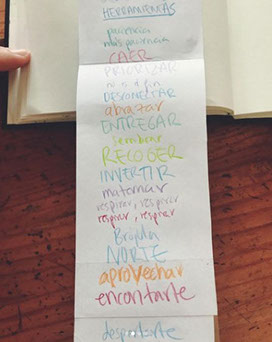 HERRAMIENTAS
paciencia
más paciencia
CAER
PRIORIZAR
DESCONECTAR
abrazar
ENTREGAR
sembrar
RECOGER
INVERTIR
maternar
respirar, respirar
respirar, respirar
Brújula
NORTE
aprovechar
encontarte
despertarte